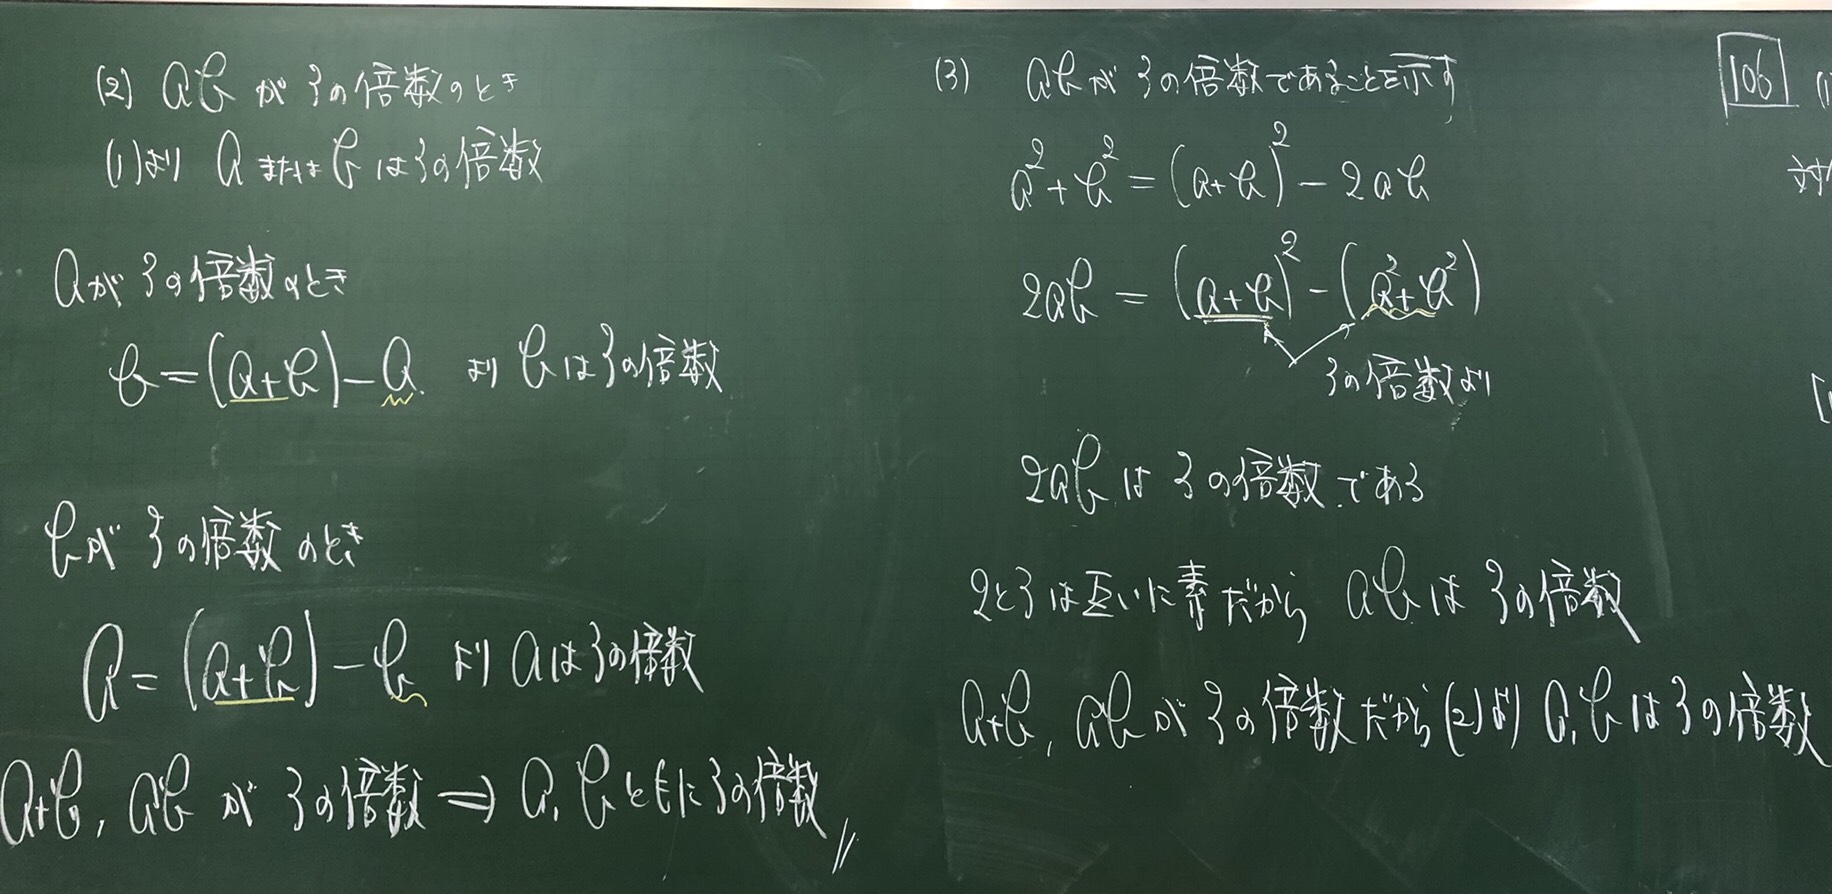 (2) abが3の倍数のとき
(1)より aまたはbは3の倍数
aが3の倍数のとき
b=(a+b)-a より bは3の倍数
bが3の倍数のとき
a=(a+b)-b より aは3の倍数
a+b, abが3の倍数 ⇒ a, bともに3の倍数 //
(3) abが3の倍数であることを示す
a²+b²=(a+b)²-2ab
2ab=(a+b)²-(a²+b²)
3の倍数より
2abは3の倍数である
2と3は互いに素だから abは3の倍数
a+b, abが3の倍数だから(2)より a, bは3の倍数
106
対